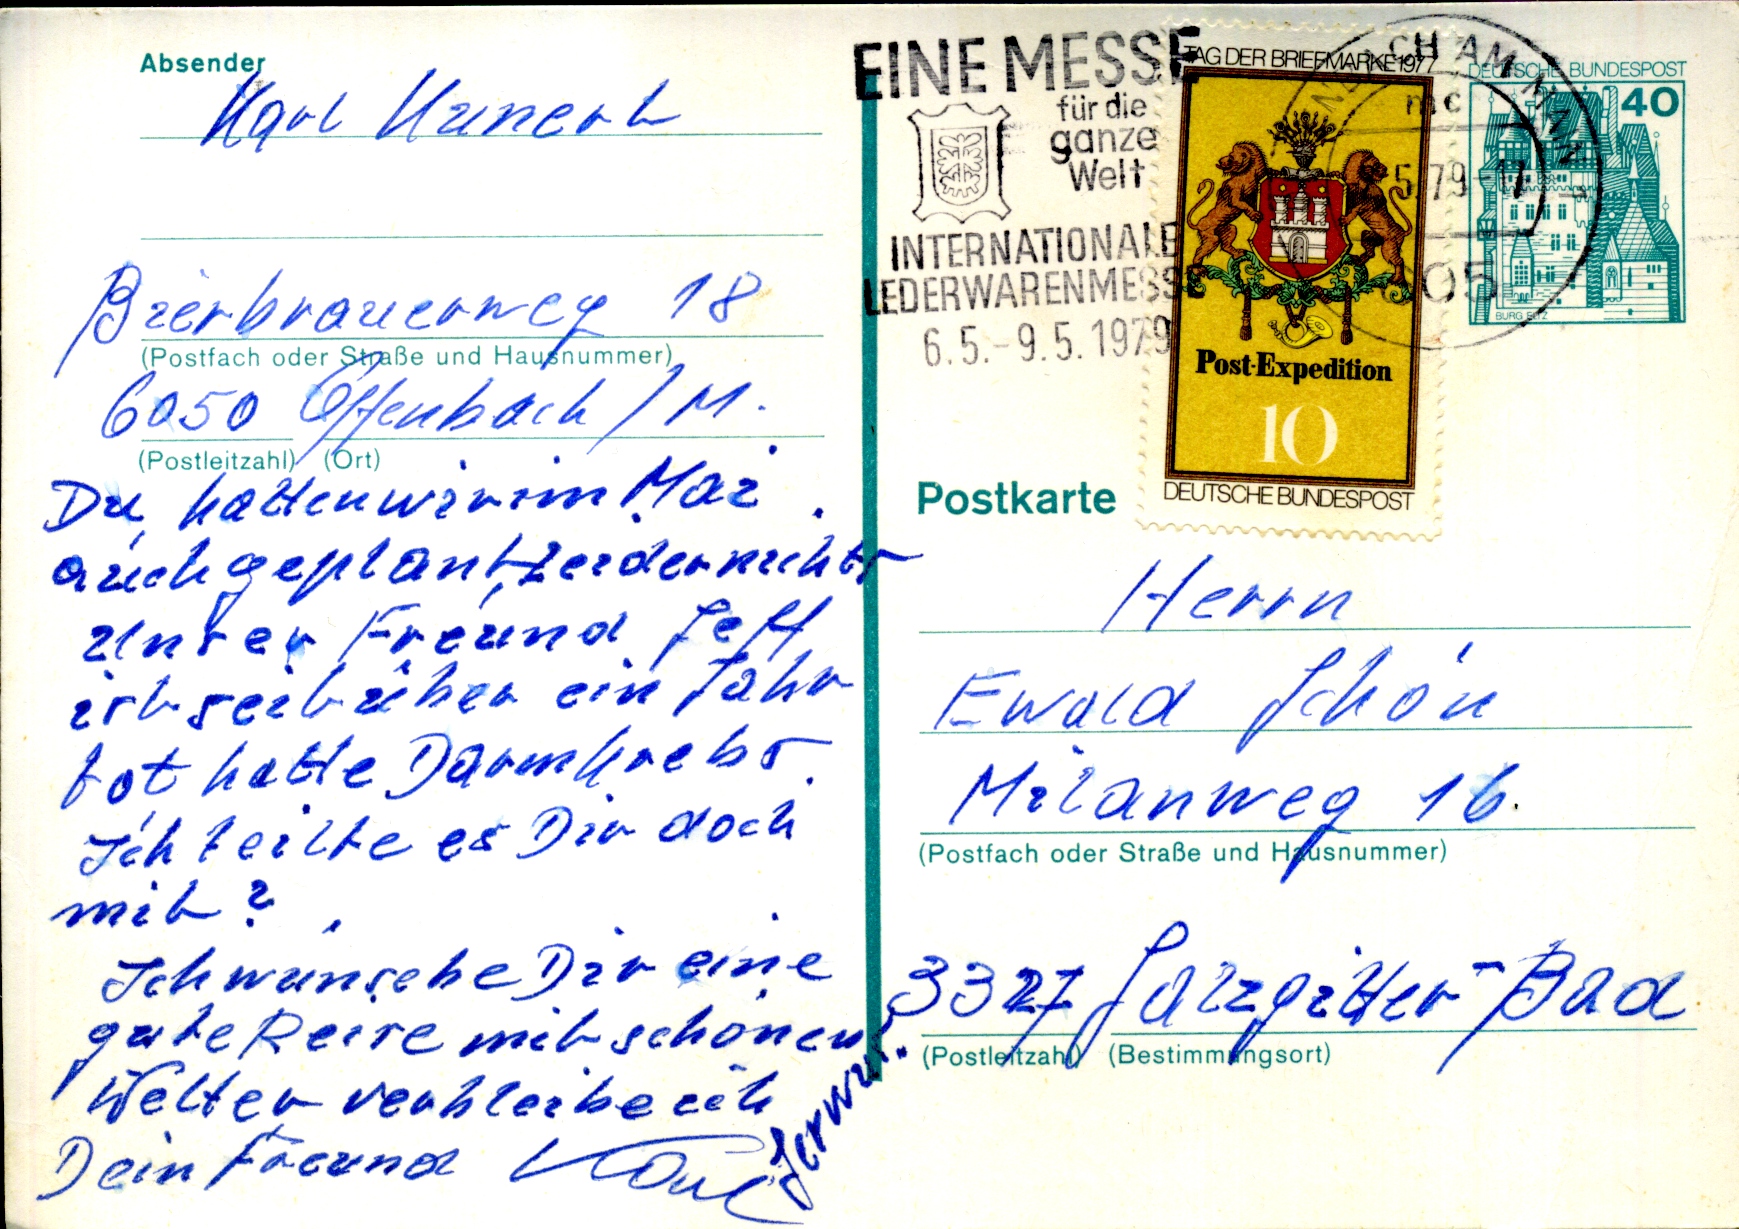 Absender
Karl Kunert
Bierbrauerweg 18
(Postfach oder Straße und Hausnummer)
6050 Offenbach / M.
(Postleitzahl) (Ort)
Du, hatten wir im Mai
auch geplant, leider nichts
unser Freund Jeff
ist seit über ein Jahr
tot hatte Darmkrebs.
Ich teilte es Dir doch
mit?
Ich wünsche Dir eine
gute Reise mit schönen
Wetter verbleibe ich
Dein Freund Karl
EINE MESSE
für die
ganze
Welt
INTERNATIONALE
LEDERWARENMESSE
6.5.-9.5.1979
TAG DER BRIEFMARKE 1977
Post-Expedition
10
DEUTSCHE BUNDESPOST
DEUTSCHE BUNDESPOST
40
BURG ELTZ
CH AM MAIN
mc
5.79-17
605
Postkarte
Herrn
Ewald Schön
Milanweg 16.
(Postfach oder Straße und Hausnummer)
3327 Salzgitter-Bad
(Postleitzahl) (Bestimmungsort)